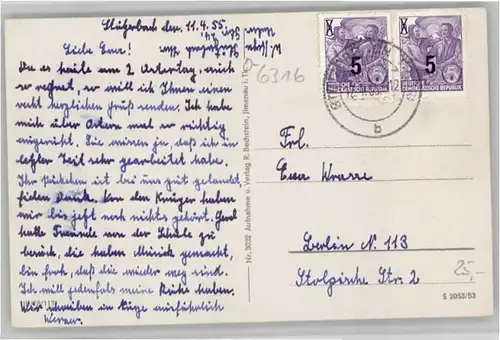 Stützerbach den 11.4.55.
Liebe Ewa!
Da es heute am 2 Ostertag, auch
so regnet, will ich Ihnen einen
recht herzlichen Gruß senden. Ich habe
mich über Ostern mal so richtig
ausgeruht. Sie wissen ja, daß ich in
letzter Zeit sehr gearbeitet habe.
Ihr Päckchen ist bei uns gut gelandet,
vielen Dank. Von den Krüger haben
wir bis jetzt noch nichts gehört.
hatte Freunde von der Schule zu
besuch, die haben Musik gemacht,
bin froh, daß die wieder weg sind.
Ich will jedenfalls meine Ruhe haben.
Wir schreiben in Kürze ausführlich
Werner.
6316
X 5 X 5
DEUTSCHE DEMOKRATISCHE REPUBLIK
DEUTSCHE DEMOKRATISCHE REPUBLIK
b
Nr. 3032 Aufnahme u. Verlag R. Bechstein, Ilmenau i. Th.
Frl.
Ewa
Berlin N. 113
Stolpische Str. 2
25,-
S 2053/53